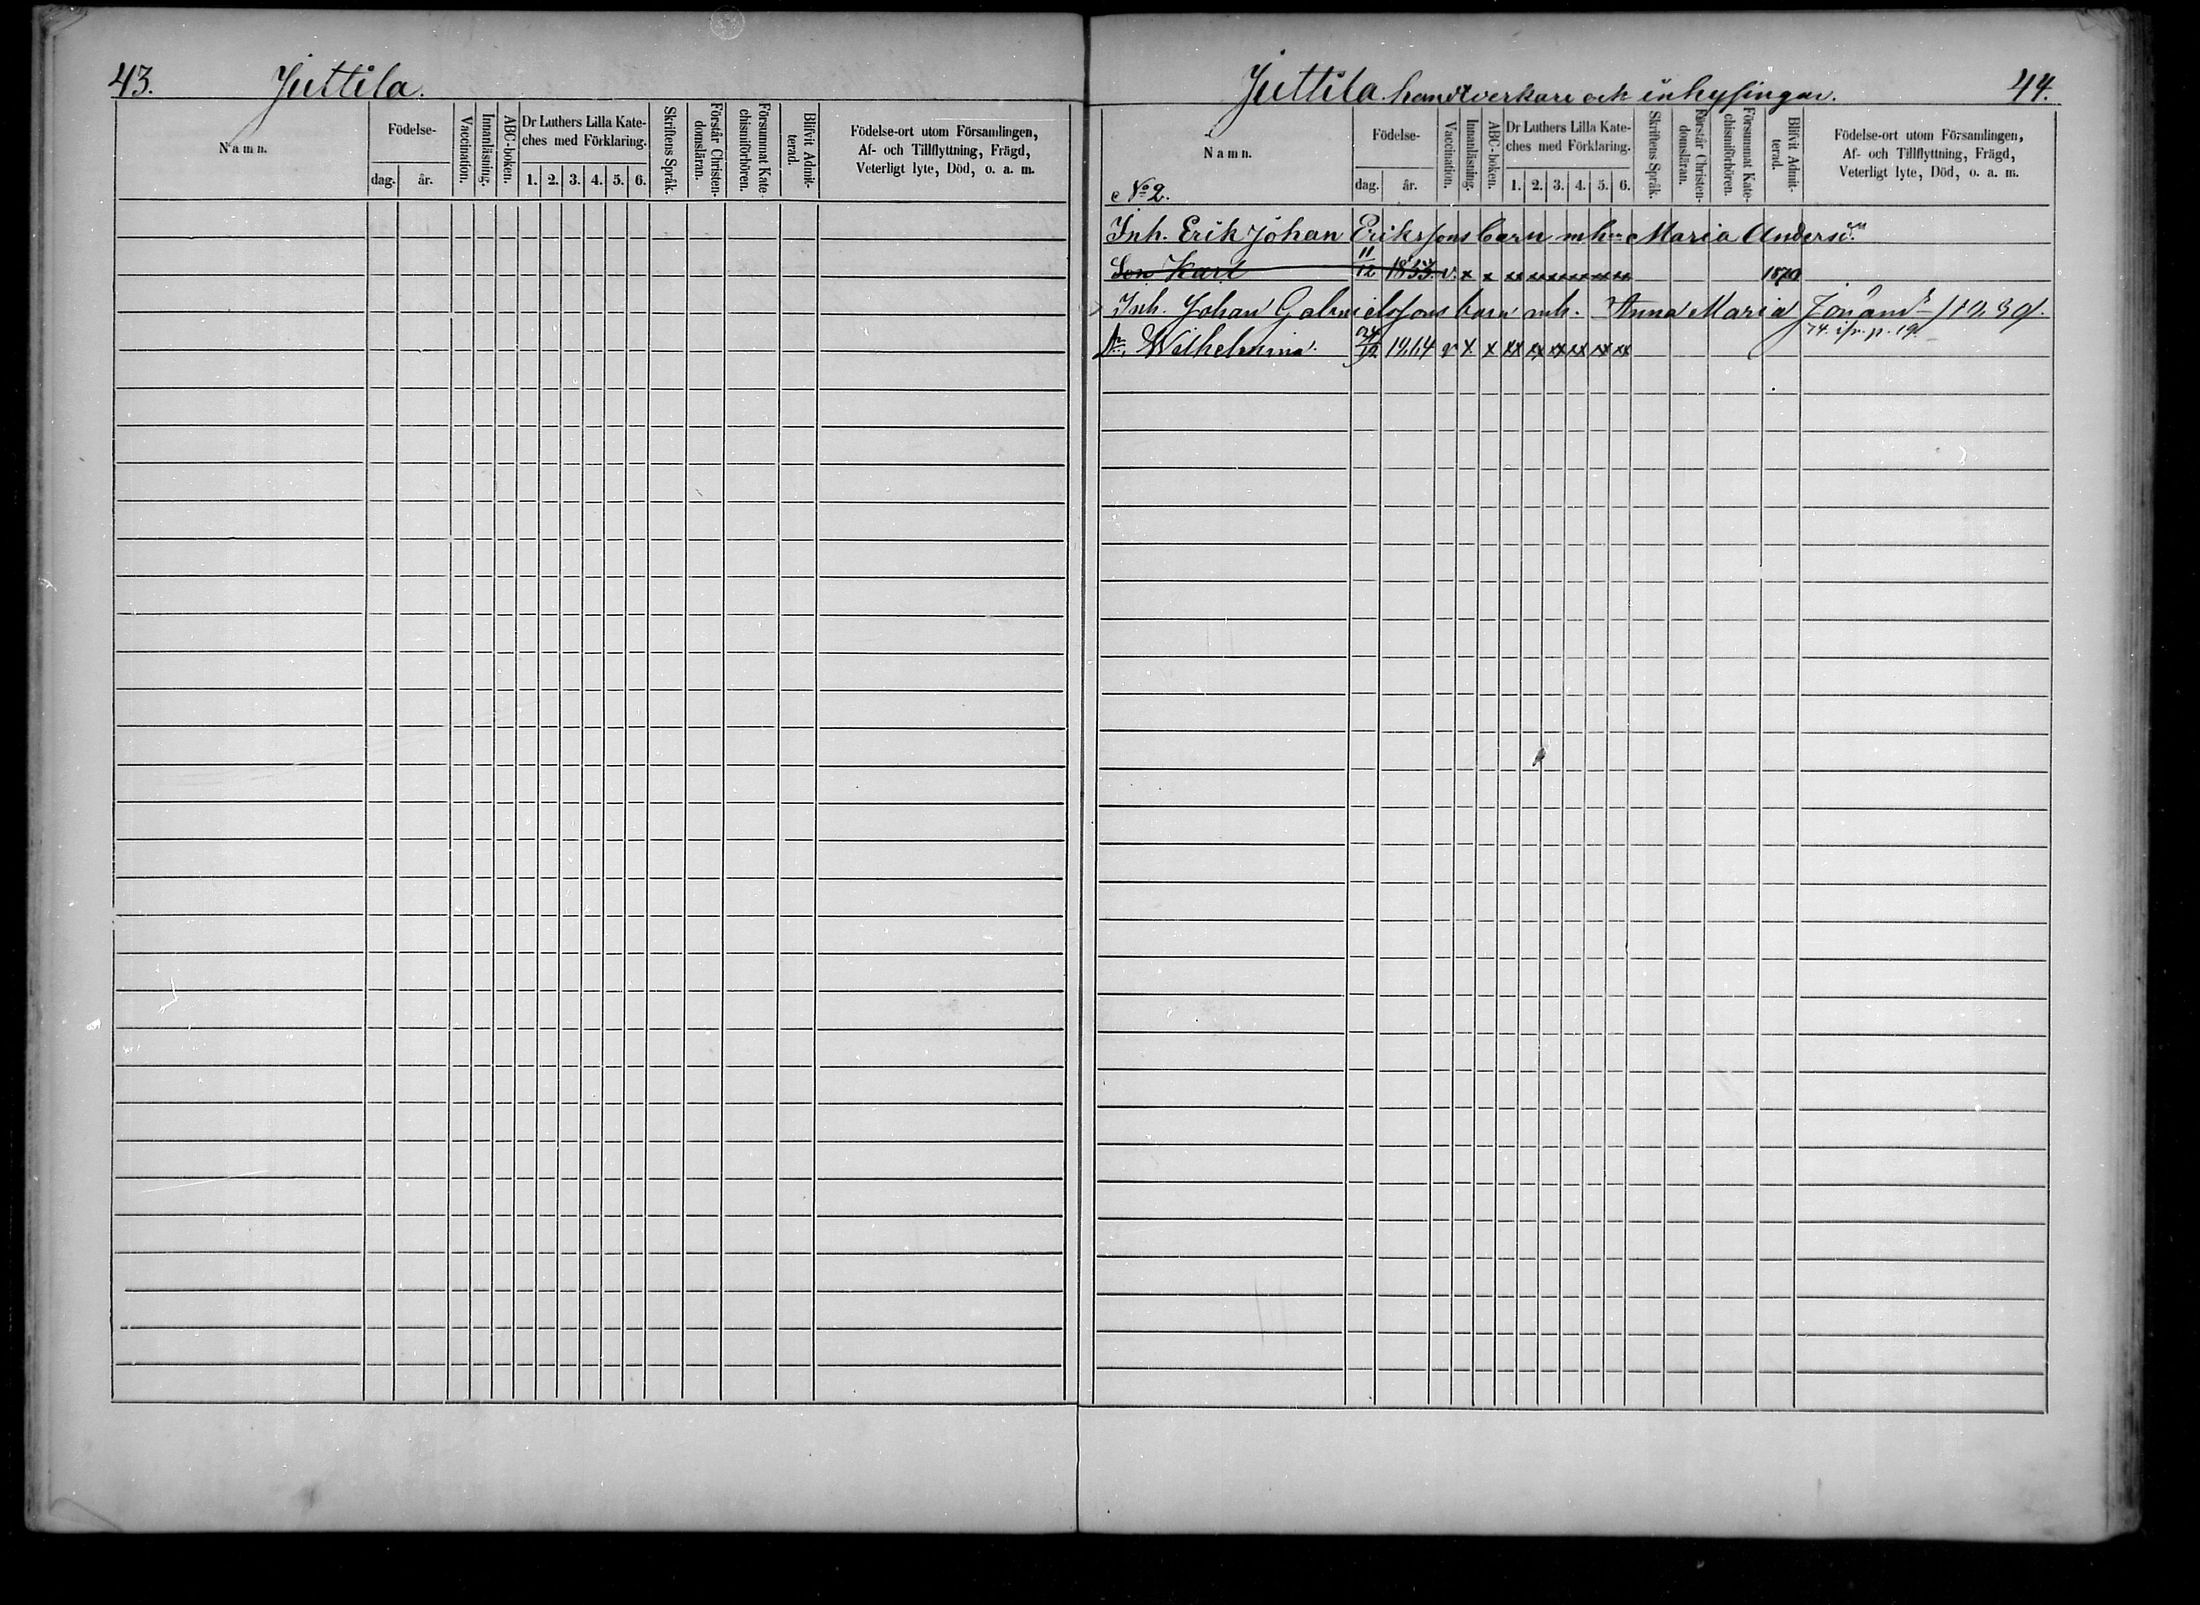 43.
Juttila.
Namn.
Födelse-
dag.
år.
Vaccination.
Innanläsning.
ABC-boken.
Dr Luthers Lilla Kate-
ches med Förklaring.
1. 2. 3. 4. 5. 6.
Skriftens Språk.
Förstår Christen-
domsläran.
Försummat Kate-
chismiförhören.
Blifvit Admit-
terad.
Födelse-ort utom Församlingen,
Af- och Tillflyttning, Frägd,
Veterligt lyte, Död, o. a. m.
Juttila handtverkare och inhysingar.
44.
Namn.
Födelse-
dag.
år.
Vaccination.
Innanläsning.
ABC-boken.
Dr Luthers Lilla Kate-
ches med Förklaring.
1. 2. 3. 4. 5. 6.
Skriftens Språk.
Förstår Christen-
domsläran.
Försummat Kate-
chismiförhören.
Blifvit Admit-
terad.
Födelse-ort utom Församlingen,
Af- och Tillflyttning, Frägd,
Veterligt lyte, Död, o. a. m.
No 2.
Inh. Erik Johan Erikssons barn mh Maria Andersd.
Son Karl 11/12 1853. v. x x x x x x x x 1870
Inh. Johan Gabrielssons barn mh. Anna Maria
74. p. 19
Wilhelmina. v x x x x x x x x